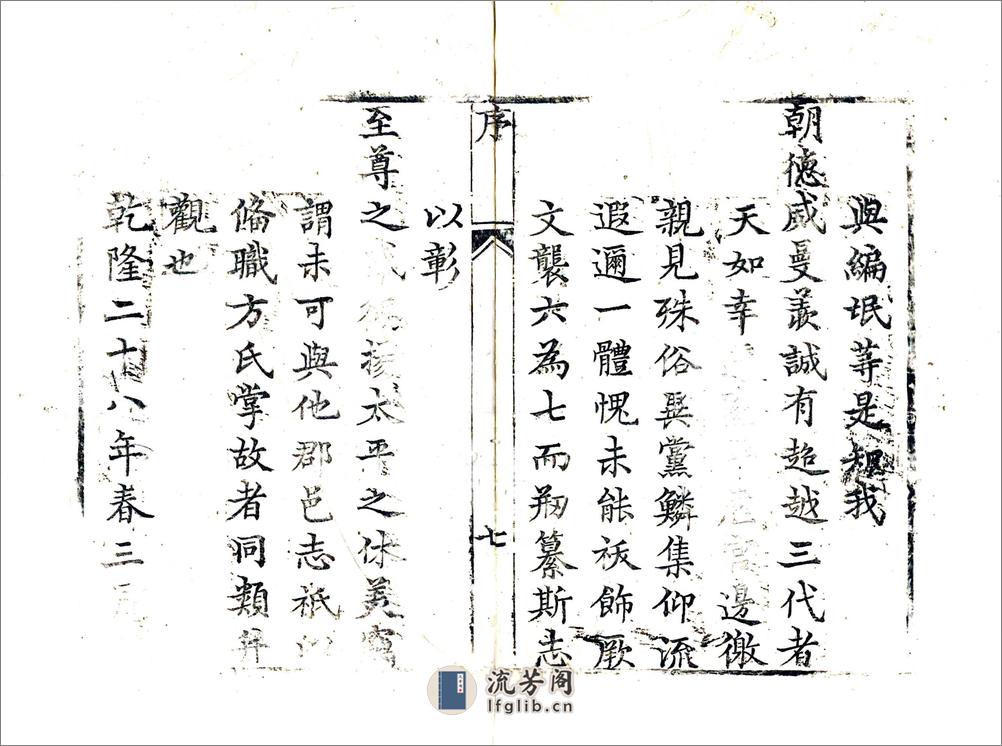 與編氓等是知我
朝德威曼羨誠有超越三代者
天如幸邊徼
親見殊俗異黨鱗集仰流
遐邇一體愧未能祓飾厥
文襲六為七而刱纂斯志
序
七
以彰
至尊之太平之休美
謂未可與他郡邑志祇
俻職方氏掌故者同類并
觀也
乾隆二十八年春三
流芳阁
lfglib.cn